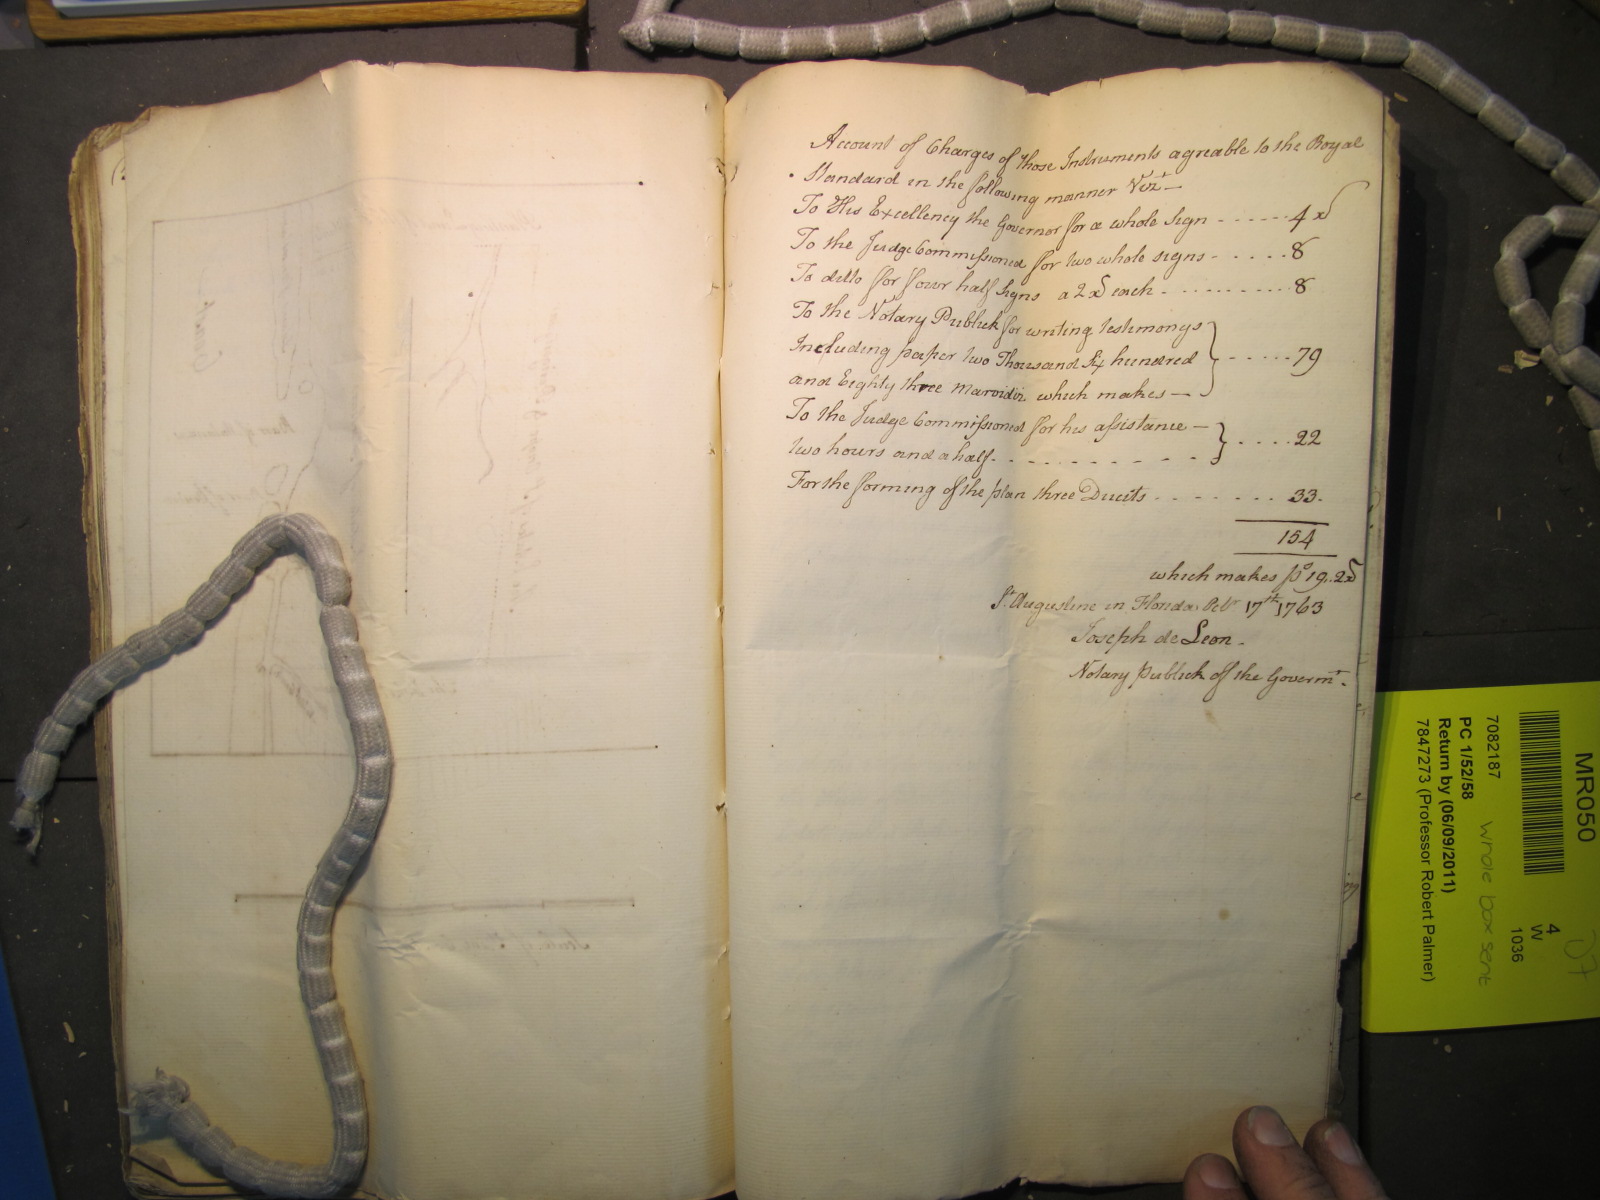 Account of Charges of those Instruments agreable to the Royal
Standard in the following manner Vizt —
To His Excellency the Governor for a whole Sign ------ 4 rs
To the Judge Commissioned for two whole signs ----- 8
To ditto for four half Signs a 2 rs each ---------- 8
To the Notary Publick for writing testimonys
Including paper two Thousand Six hundred
and Eighty three Marvidiz which makes — } ----- 79
To the Judge Commissioned for his assistance —
two hours and a half - - - - - - - - } ---- 22
For the forming of the plan three Ducits - - - - - - - 33.
154
which makes ps 19..2 rs
St. Augustine in Florida 17th 1763
Joseph de Leon.
Notary Publick of the Governmt.
MR050
4
W
1036
7082187
whole box sent
PC 1/52/58
Return by (06/09/2011)
7847273 (Professor Robert Palmer)